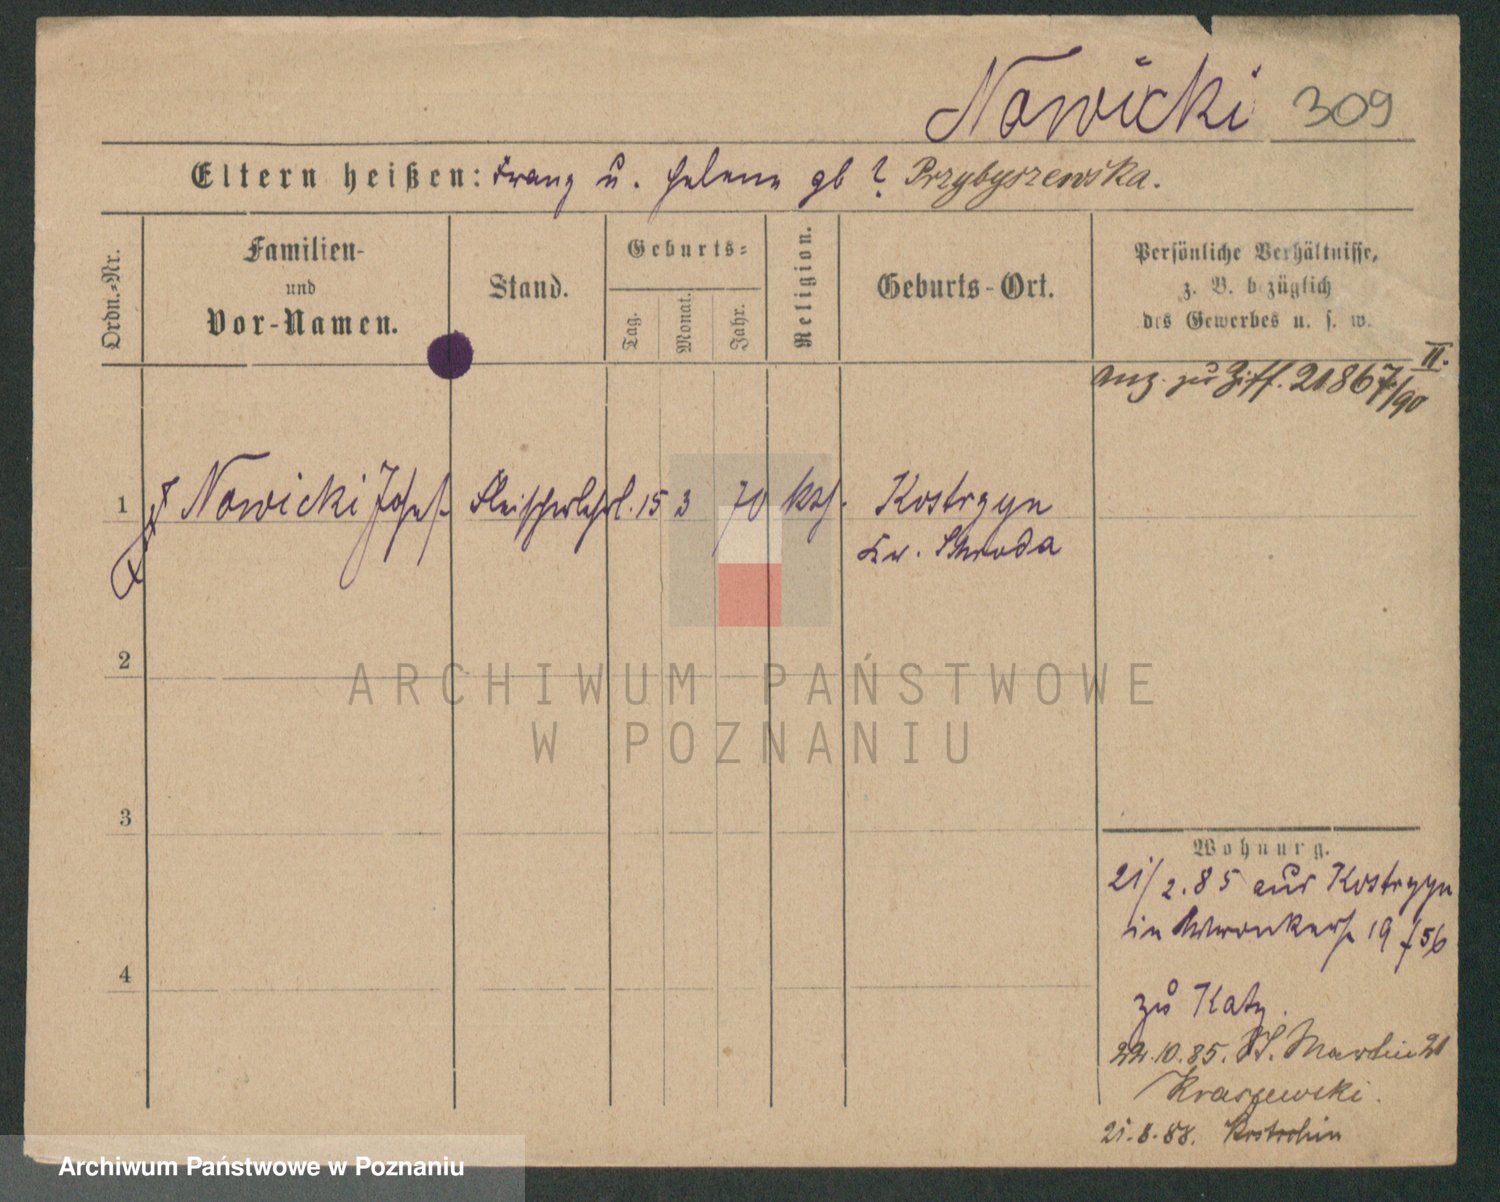 Nowicki 309
Eltern heißen: Franz u. Helene gb ? Przybyszewska.
Ordn.-Nr.
Familien-
und
Vor-Namen.
Stand.
Geburts-
Tag.
Monat.
Jahr.
Religion.
Geburts-Ort.
Persönliche Verhältnisse,
z. B. bezüglich
des Gewerbes u. s. w.
II.
Anz. zu Ziff. 21867/90
1 Nowicki Josef Fleischerlehrl. 15 3 70 kath. Kostrzyn
Kr. Schroda
2
ARCHIWUM PAŃSTWOWE
W POZNANIU
3
Wohnung.
21/2.85 aus Kostrzyn
in Wronkerstr 19 f 56
4
zu Katz.
22.10.85. St. Martin 21
Kraszewski.
21.8.88. Kostschin
Archiwum Państwowe w Poznaniu